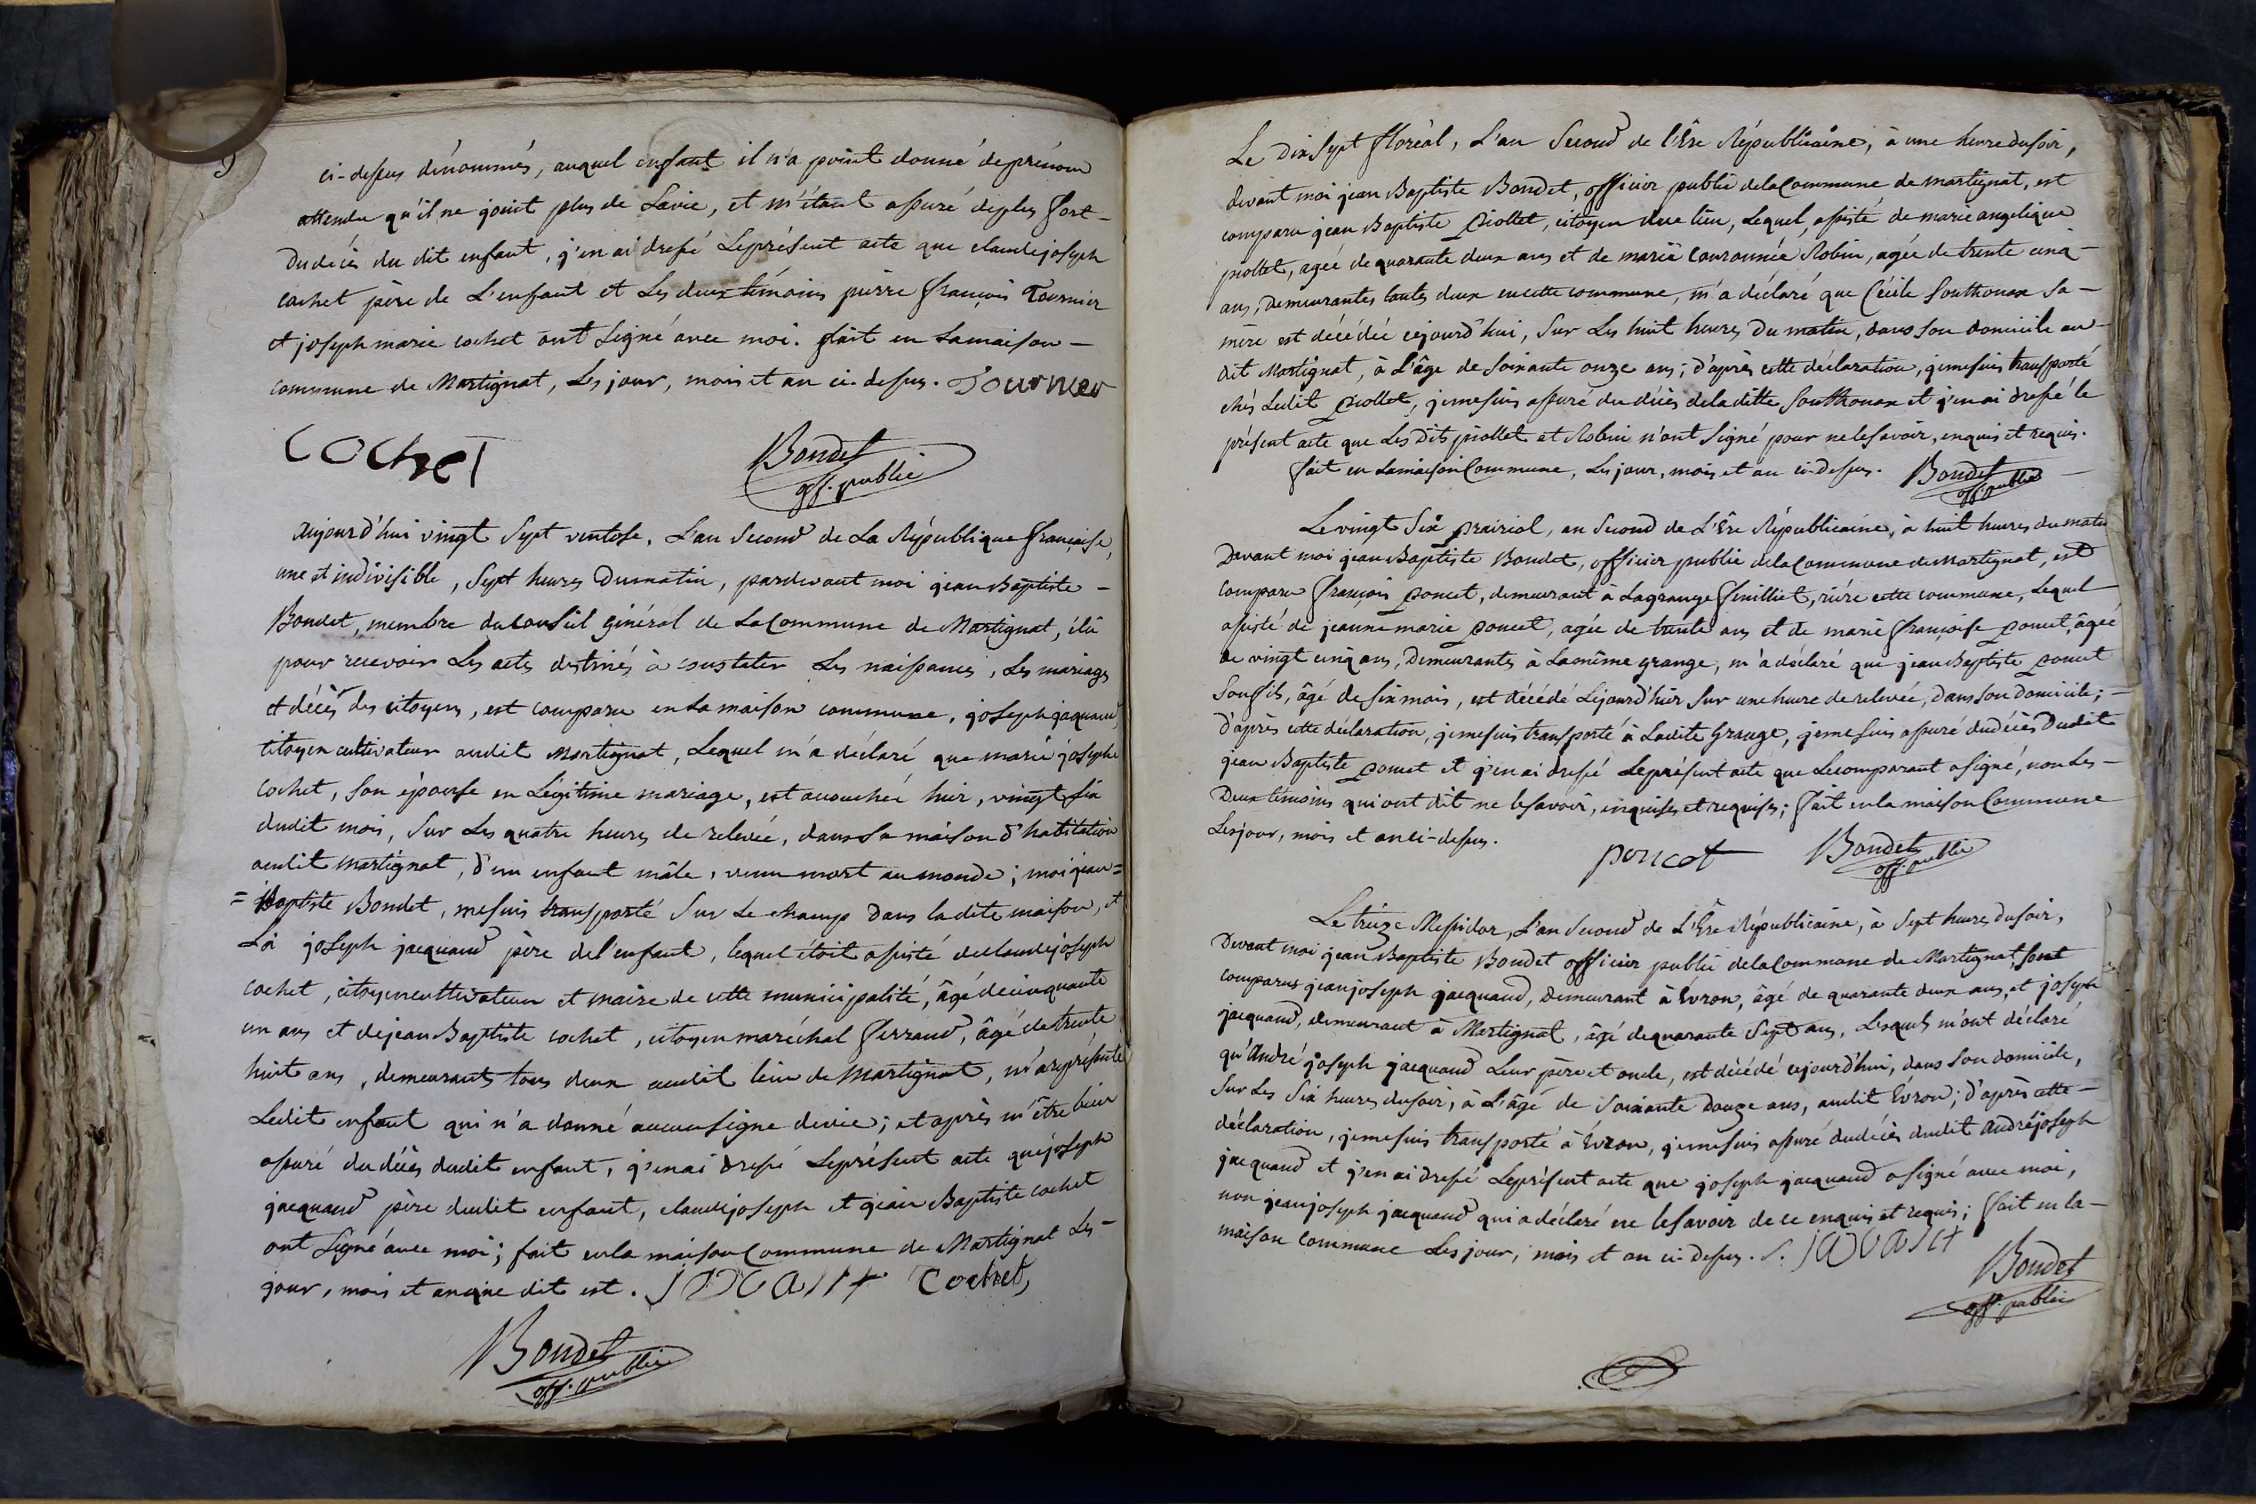 9
ci-dessus dénommés, auquel enfant il n'a point donné de prénom
attendu qu'il ne jouit plus de la vie, et m'étant assuré de plus fort -
du décès du dit enfant, j'en ai dressé le présent acte que claude joseph
cochet père de l'enfant et les deux témoins pierre françois Tournier
et joseph marie cochet ont signé avec moi. fait en la maison -
commune de Martignat, les jour, mois et an ci-dessus. Tournier
Cochet Bondet
off. public
aujourd'hui vingt sept ventose, l'an second de la République française,
une et indivisible, sept heures du matin, pardevant moi jean Baptiste -
Bondet, membre du conseil général de la Commune de Martignat, élu
pour recevoir les actes destinés à constater les naissances, les mariages
et décès des citoyens, est comparu en la maison commune, joseph jacquaud,
citoyen cultivateur audit Martignat, lequel m'a déclaré que marie josephe
cochet, son épouse en légitime mariage, est accouchée hier, vingt six
dudit mois, sur les quatre heures de relevée, dans sa maison d'habitation
audit Martignat, d'un enfant mâle, venu mort au monde; moi jean =
= Baptiste Bondet, me suis transporté sur le champ dans ladite maison, et
là joseph jacquaud père de l'enfant, lequel étoit assisté de claude joseph
cochet, citoyen cultivateur et maire de cette municipalité, âgé de cinquante
un ans et de jean Baptiste cochet, citoyen maréchal ferrand, âgé de trente
huit ans, demeurants tous deux audit lieu de Martignat, m'a représenté
ledit enfant qui n'a donné aucun signe de vie; et après m'être bien
assuré du décès dudit enfant, j'en ai dressé le présent acte que joseph
jacquaud père dudit enfant, claude joseph et jean Baptiste cochet
ont signé avec moi; fait en la maison Commune de Martignat les -
jour, mois et an que dit est. Cochet
Bondet
off. public
Le dix sept floréal, l'an second de l'Ère Républicaine, à une heure du soir,
devant moi jean Baptiste Bondet, officier public de la Commune de Martignat, est
comparu jean Baptiste piollet, citoyen du lieu, lequel, assisté de marie angelique
piollet, agée de quarante deux ans et de marie couronnée Robin, agée de trente cinq -
ans, demeurantes toutes deux en cette commune, m'a déclaré que Cécile Southonax sa -
mère est décédée cejourd'hui, sur les huit heures du matin, dans son domicile au -
dit Martignat, à l'âge de soixante onze ans; d'après cette déclaration, je me suis transporté
chés ledit piollet, je me suis assuré du décès de la ditte Southonax et j'en ai dressé le
présent acte que les dits piollet et Robin n'ont signé pour ne le savoir, enquis et requis.
fait en la maison Commune, les jour, mois et an ci-dessus. Bondet
off. public
Le vingt six prairial, an second de l'Ère Républicaine, à huit heures du matin
devant moi jean Baptiste Bondet, officier public de la Commune de Martignat, est
comparu françois poncet, demeurant à Lagrange feuilliet, rière cette commune, lequel
assisté de jeanne marie poncet, agée de trente ans et de marie françoise poncet, âgée
de vingt cinq ans, demeurantes à la même grange, m'a déclaré que jean Baptiste poncet
son fils, âgé de six mois, est décédé le jour d'hier sur une heure de relevée, dans son domicile; -
d'après cette déclaration, je me suis transporté à ladite Grange, je me suis assuré du décès dudit
jean Baptiste poncet et j'en ai dressé le présent acte que le comparant a signé, non les -
deux témoins qui ont dit ne le savoir, enquises et requises; fait en la maison Commune
les jour, mois et an ci-dessus.
poncet Bondet
off. public
Le treize Messidor, l'an second de l'Ère Républicaine, à sept heures du soir,
devant moi jean Baptiste Bondet officier public de la Commune de Martignat, sont
comparus jean joseph jacquaud, demeurant à Évron, âgé de quarante deux ans, et joseph
jacquaud, demeurant à Martignat, âgé de quarante sept ans, lesquels m'ont déclaré
qu'André joseph jacquaud leur père et oncle, est décédé cejourd'hui, dans son domicile,
sur les six heures du soir, à l'âge de soixante douze ans, audit Évron; d'après cette -
déclaration, je me suis transporté à Évron, je me suis assuré du décès dudit André joseph
jacquaud et j'en ai dressé le présent acte que joseph jacquaud a signé avec moi,
non jean joseph jacquaud qui a déclaré ne le savoir de ce enquis et requis; fait en la -
maison commune les jour, mois et an ci-dessus.
Bondet
off. public